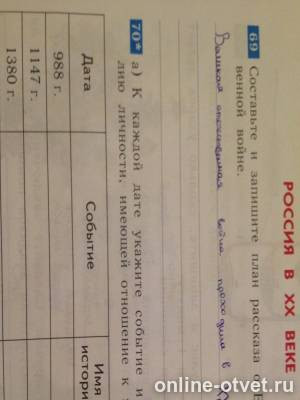 РОССИЯ В XX ВЕКЕ
69 Составьте и запишите план рассказа о
венной войне.
Великая отечественная война проходила в
70* а) К каждой дате укажите событие и
лию личности, имеющей отношение к
Дата Событие Имя
истори
988 г.
1147 г.
1380 г.
online-otvet.ru